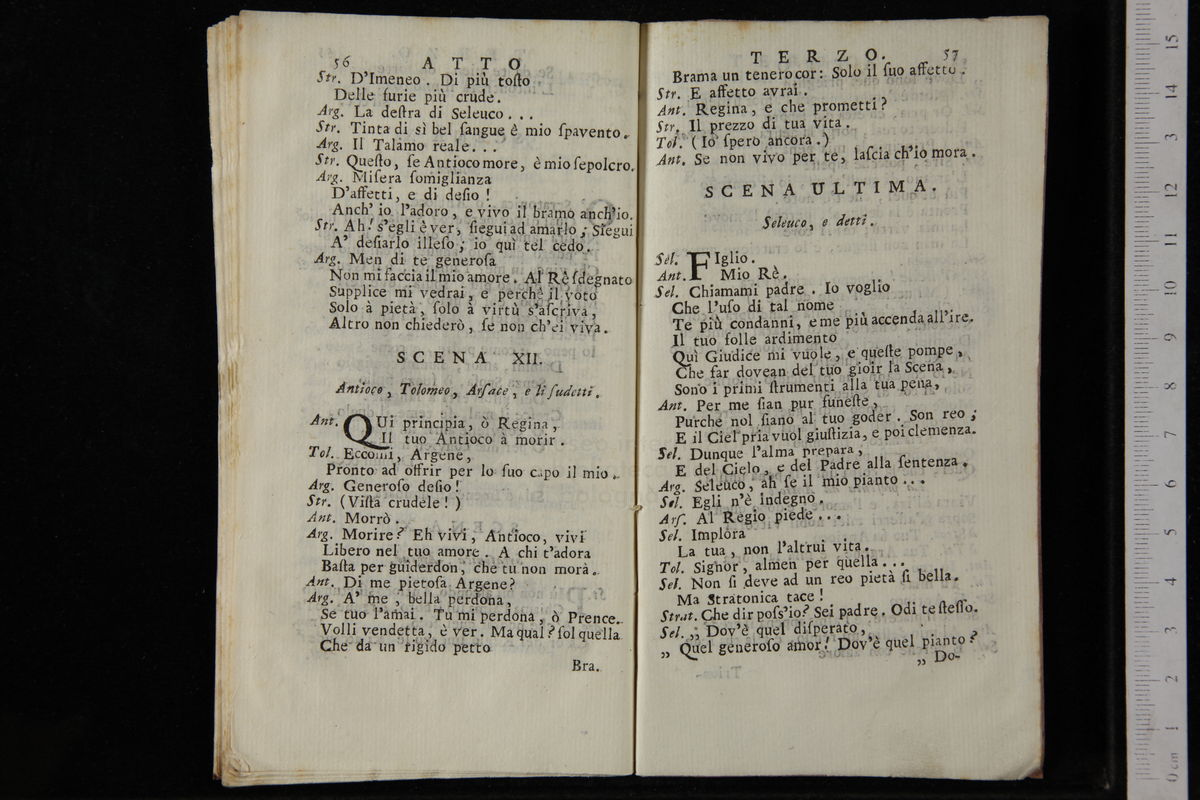 56 ATTO
Str. D'Imeneo. Di più toſto
Delle furie più crude.
Arg. La deſtra di Seleuco...
Str. Tinta di sì bel ſangue è mio ſpavento.
Arg. Il Talamo reale...
Str. Queſto, ſe Antioco more, è mio ſepolcro.
Arg. Miſera ſomiglianza
D'affetti, e di deſio!
Anch' io l'adoro, e vivo il bramo anch'io.
Str. Ah! s'egli è ver, ſiegui ad amarlo; Siegui
A' deſiarlo illeſo; io quì tel cedo.
Arg. Men di te generoſa
Non mi faccia il mio amore. Al Rè ſdegnato
Supplice mi vedrai, e perchè il voto
Solo à pietà, ſolo à virtù s'aſcriva,
Altro non chiederò, ſe non ch'ei viva.
SCENA XII.
Antioco, Tolomeo, Arſace, e li ſudetti.
Ant. QUi principia, ò Regina,
Il tuo Antioco à morir.
Tol. Eccomi, Argene,
Pronto ad offrir per lo ſuo capo il mio.
Arg. Generoſo deſio!
Str. (Viſta crudele!)
Ant. Morrò.
Arg. Morire? Eh vivi, Antioco, vivi
Libero nel tuo amore. A chi t'adora
Baſta per guiderdon, che tu non morà.
Ant. Di me pietoſa Argene?
Arg. A' me, bella perdona,
Se tuo l'amai. Tu mi perdona, ò Prence.
Volli vendetta, è ver. Ma qual? ſol quella
Che da un rigido petto
Bra.
TERZO. 57
Brama un tenero cor: Solo il ſuo affetto.
Str. E affetto avrai.
Ant. Regina, e che prometti?
Str. Il prezzo di tua vita.
Tol. (Io ſpero ancora.)
Ant. Se non vivo per te, laſcia ch'io mora.
SCENA ULTIMA.
Seleuco, e detti.
Sel. FIglio.
Ant. Mio Rè.
Sel. Chiamami padre. Io voglio
Che l'uſo di tal nome
Te più condanni, e me più accenda all'ire.
Il tuo folle ardimento
Quì Giudice mi vuole, e queſte pompe,
Che far dovean del tuo gioir la Scena,
Sono i primi ſtrumenti alla tua pena,
Ant. Per me ſian pur funeſte,
Purche nol ſiano al tuo goder. Son reo;
E il Ciel pria vuol giuſtizia, e poi clemenza.
Sel. Dunque l'alma prepara,
E del Cielo, e del Padre alla ſentenza.
Arg. Seleuco, ah ſe il mio pianto...
Sel. Egli n'è indegno.
Arſ. Al Regio piede...
Sel. Implora
La tua, non l'altrui vita.
Tol. Signor, almen per quella...
Sel. Non ſi deve ad un reo pietà ſi bella.
Ma Stratonica tace!
Strat. Che dir poſs'io? Sei padre. Odi te ſteſſo.
Sel. „ Dov'è quel diſperato,
„ Quel generoſo amor! Dov'è quel pianto?
„ Do-